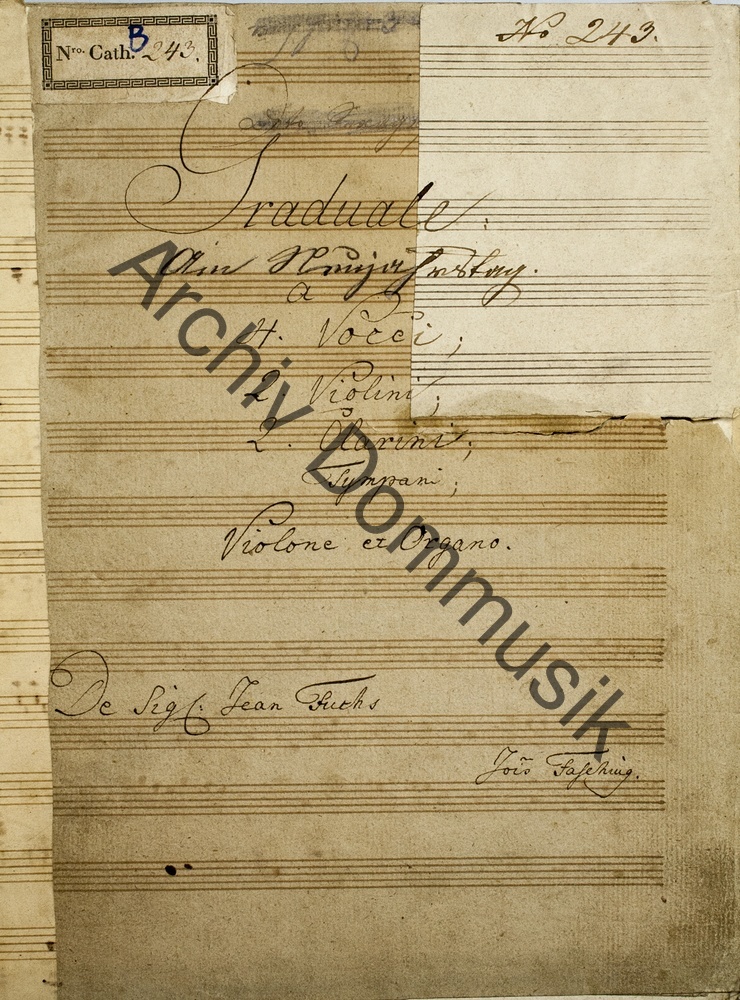 Nro. Cath. B 243.
No 243.
Graduale:
Am Neujahrstag.
a
4. Vocci;
2. Violini;
2. Clarini;
Tympani;
Violone et Organo.
De Sig: Jean Fuchs
Jois Fasching.
Archiv Dommusik